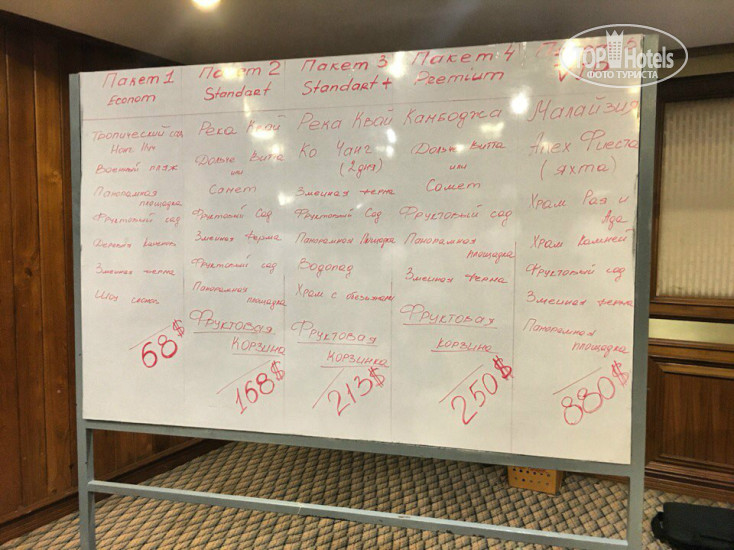 TOP Hotels
ФОТО ТУРИСТА
Пакет 1
Econom
Тропический сад
Военный пляж
Панорамная
площадка
Фруктовый сад
Змеиная ферма
68$
Пакет 2
Standart
Река Квай
Дольче Вита
или
Самет
Фруктовый Сад
Змеиная ферма
Фруктовый сад
Панорамная
площадка
Фруктовая
корзина
168$
Пакет 3
Standart +
Река Квай
Ко Чанг
(2 дня)
Змеиная ферма
Фруктовый Сад
Панорамная Площадка
Водопад
Храм с
Фруктовая
корзинка
213$
Пакет 4
Premium
Камбоджа
Дольче Вита
или
Самет
Фруктовый сад
Панорамная
площадка
Змеиная ферма
Фруктовая
корзина
250$
VIP
Малайзия
Алех Фиеста
(яхта)
Храм Рая и
Ада
Храм Камней
Фруктовый сад
Змеиная ферма
Панорамная
площадка
880$